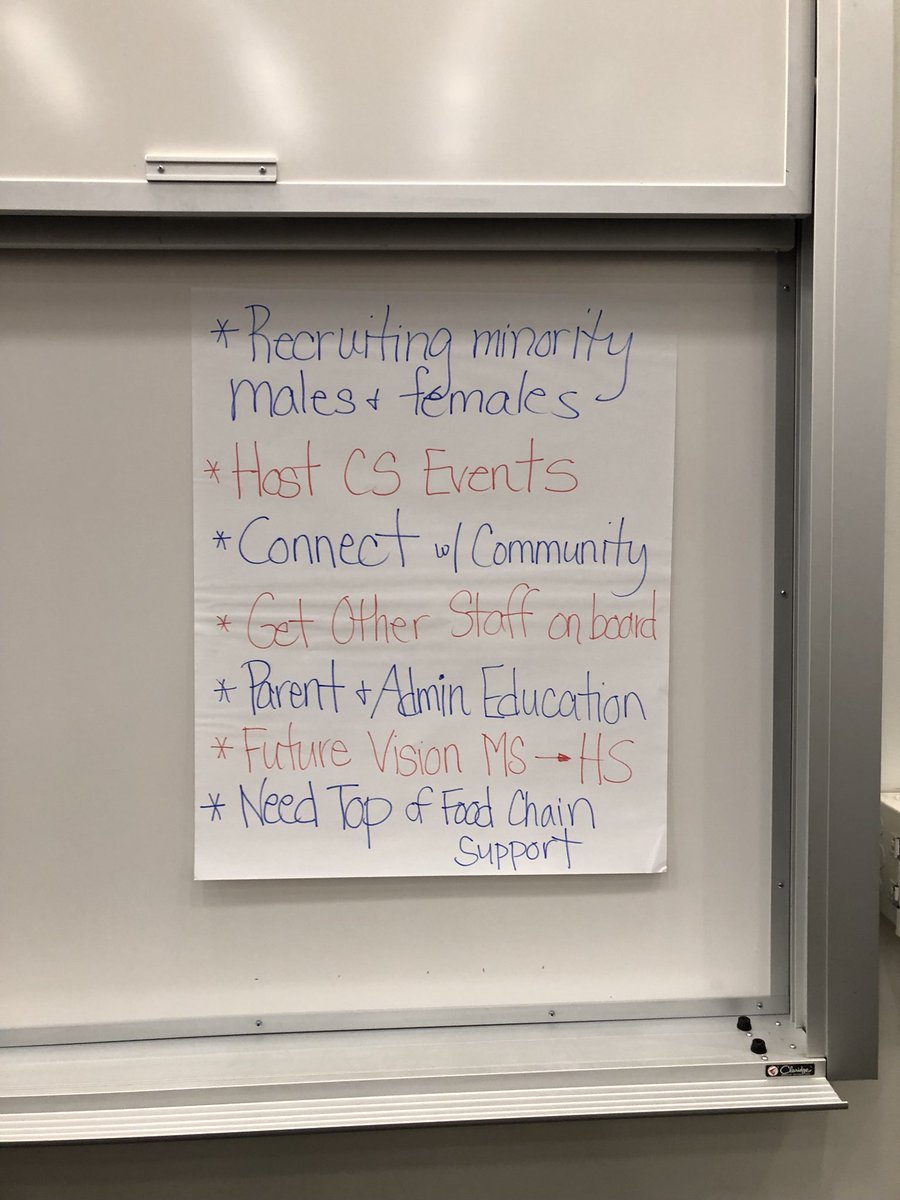 * Recruiting minority
males & females
* Host CS Events
* Connect w/ Community
* Get Other Staff on board
* Parent & Admin Education
* Future Vision MS → HS
* Need Top of Food Chain
support
Claridge